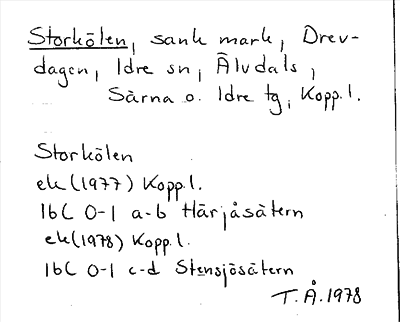 Storkölen, sank mark, Drev-
dagen, Idre sn, Älvdals,
Särna o. Idre tg, Kopp.l.
Storkölen
ek(1977) Kopp.l.
16C 0-1 a-b Härjåsätern
ek(1978) Kopp.l.
16C 0-1 c-d Stensjösätern
T.Å.1978